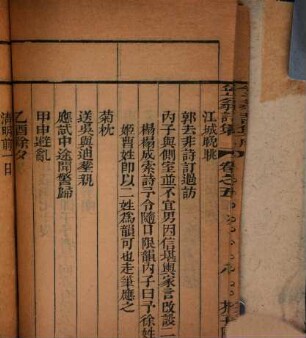 江城晚眺
郭去非詩訂過訪
內子與側室並不宜男因信堪輿家言改設二
榻榻成索詩予令隨口限韻內子曰予徐姓
姬曹姓即以二姓為韻可也走筆應之
菊枕
送吳與迪擧親
應試中途聞警歸
甲申避亂
乙酉除夕
清明前一日